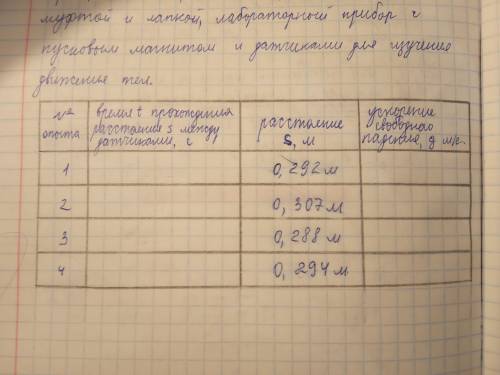 муфтой и лапкой, лабораторный прибор с
пусковым магнитом и датчиками для изучения
движение тел.
№ опыта
время t прохождения расстояния s между датчиками, с
расстояние s, м
ускорение свободнао падения, g м/с²
1
0,292 м
2
0,307 м
3
0,288 м
4
0,294 м